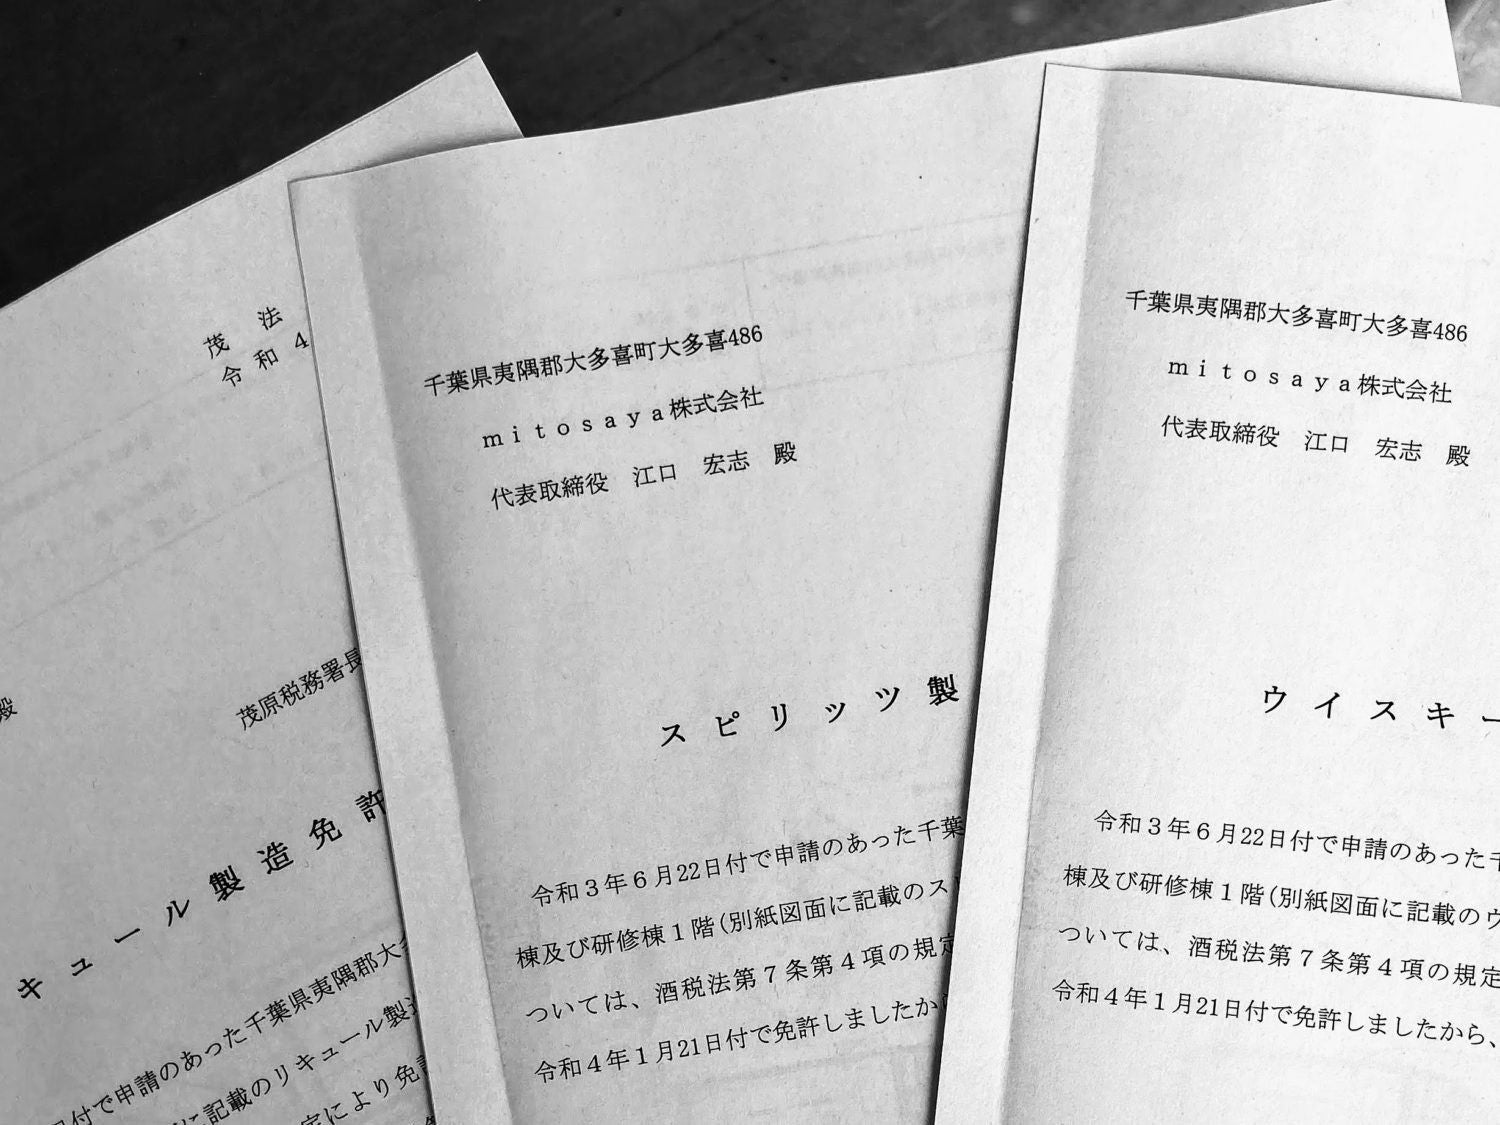 茂 法
令 和 4
殿
茂原税務署長
キュール製造免許
日付で申請のあった千葉県夷隅郡大多
に記載のリキュール製造
定により免許
千葉県夷隅郡大多喜町大多喜486
ｍｉｔｏｓａｙａ株式会社
代表取締役　江口　宏志　殿
スピリッツ製
令和３年６月22日付で申請のあった千葉
棟及び研修棟１階（別紙図面に記載のス
ついては、酒税法第７条第４項の規定
令和４年１月21日付で免許しましたか
千葉県夷隅郡大多喜町大多喜486
ｍｉｔｏｓａｙａ株式会社
代表取締役　江口　宏志　殿
ウイスキー
令和３年６月22日付で申請のあった千
棟及び研修棟１階（別紙図面に記載のウ
ついては、酒税法第７条第４項の規定
令和４年１月21日付で免許しましたから、